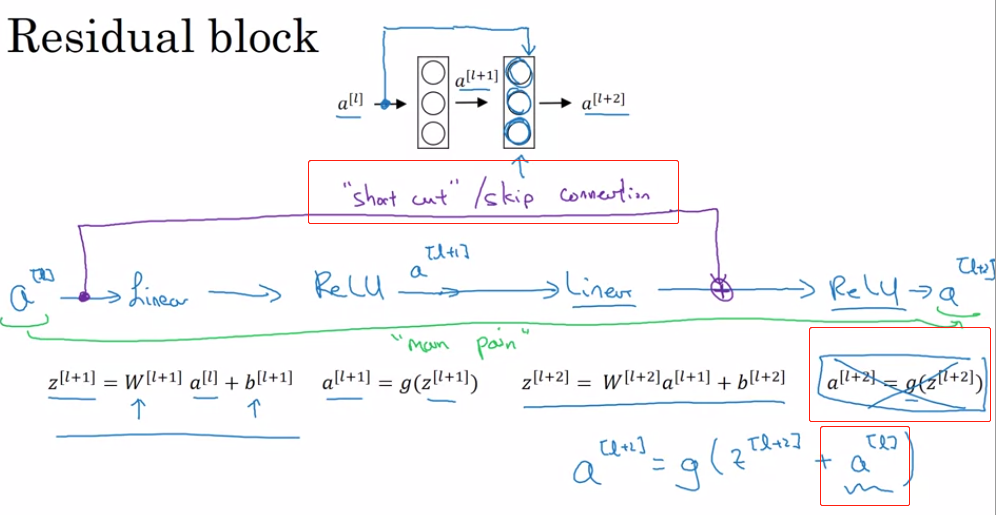 Residual block
a^[l] a^[l+1] a^[l+2]
"short cut" / skip connection
a^[l] Linear ReLU a^[l+1] Linear ReLU a^[l+2]
"main path"
z^[l+1] = W^[l+1] a^[l] + b^[l+1] a^[l+1] = g(z^[l+1]) z^[l+2] = W^[l+2]a^[l+1] + b^[l+2] a^[l+2] = g(z^[l+2])
a^[l+2] = g(z^[l+2] + a^[l])